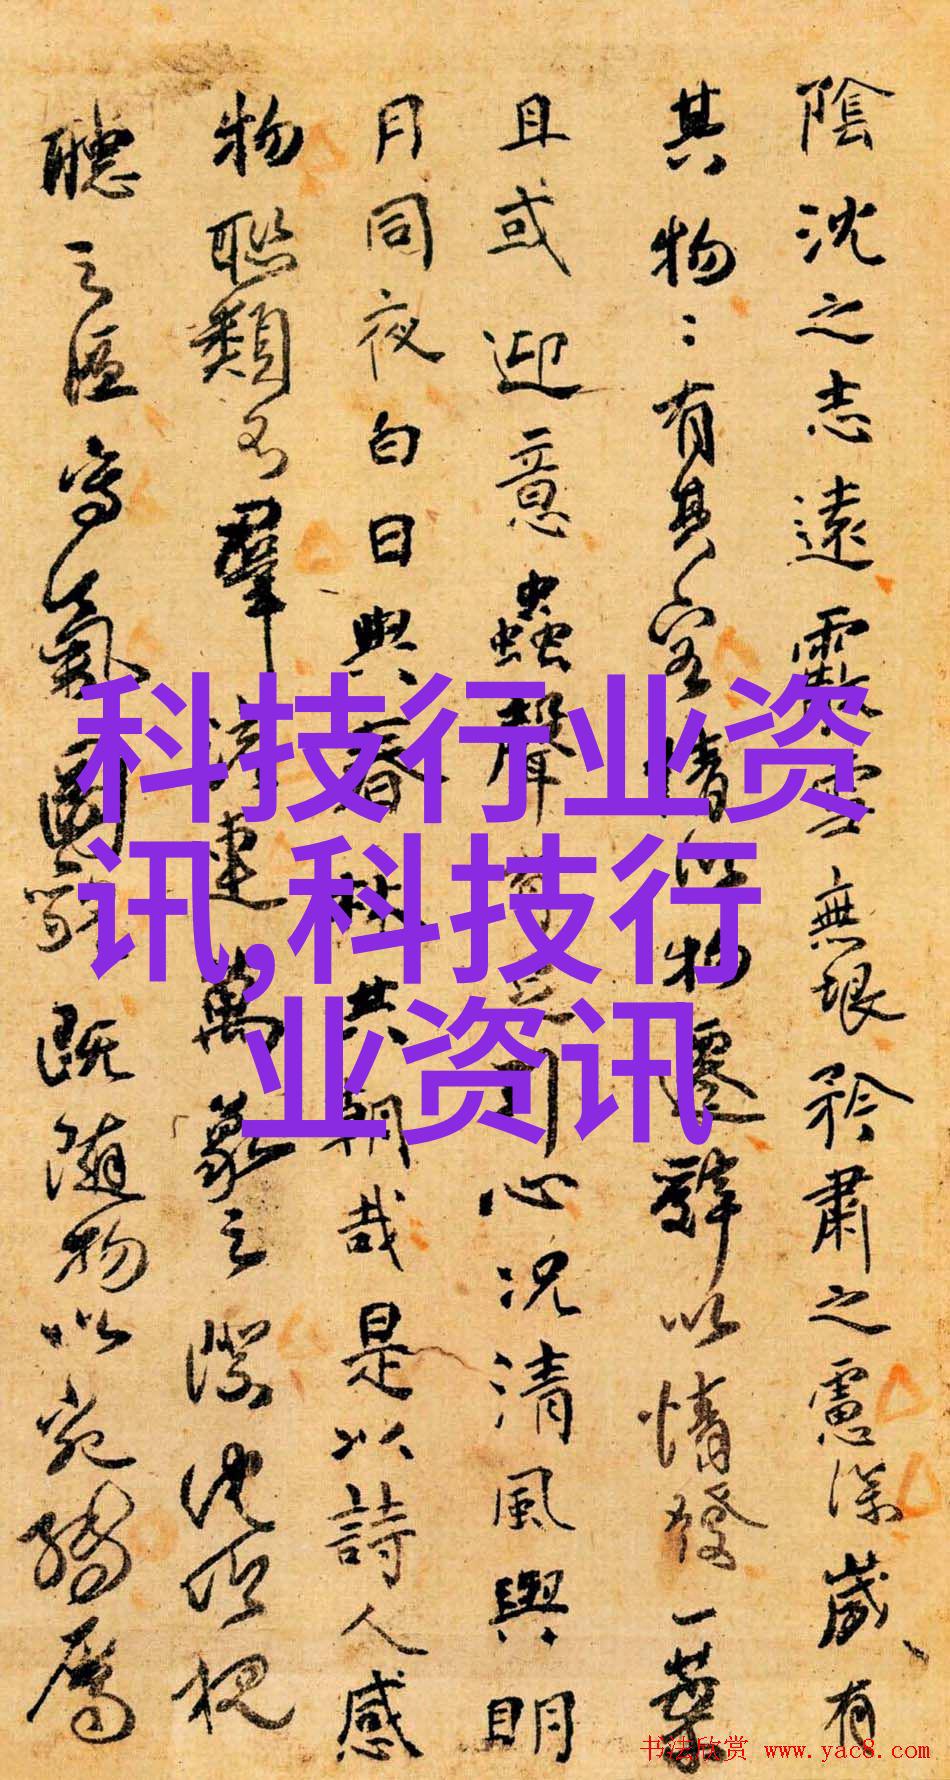 科技行业资
讯,科技行
业资讯
陰沈之志遠霰雪無垠矜肅之慮深歲有
其物〻有其容情以物遷辭以情發一葉
且或迎意蟲聲有足引心況清風與明
月同夜白日與春林共朝哉是以詩人感
物聯類不流連萬象之際沈吟視
聽之區寫氣圖貌既隨物以宛轉屬
书法欣赏 www.yac8.com